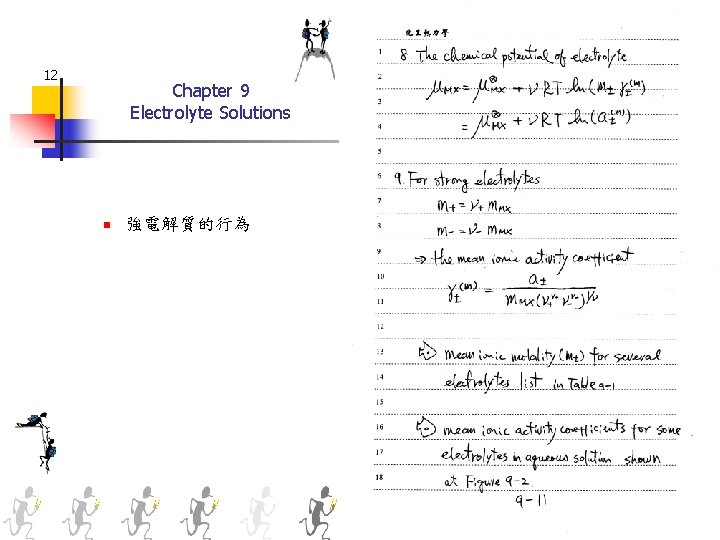 12
Chapter 9
Electrolyte Solutions
強電解質的行為
化工熱力學
1 8. The chemical potential of electrolyte
2 μMX = μMX^⊗ + νRT ln(m± γ±^(m))
3
4 = μMX^⊗ + νRT ln(a±^(m))
5
6 9. For strong electrolytes
7 m+ = ν+ mMX
8 m- = ν- mMX
9 ⇒ the mean ionic activity coefficient
10 γ±^(m) = a± / mMX(ν+^ν+ ν-^ν-)^1/ν
11
12
13 mean ionic molality (m±) for several
14 electrolytes list in Table 9-1
15
16 mean ionic activity coefficients for some
17 electrolytes in aqueous solution shown
18 at Figure 9-2
9-11